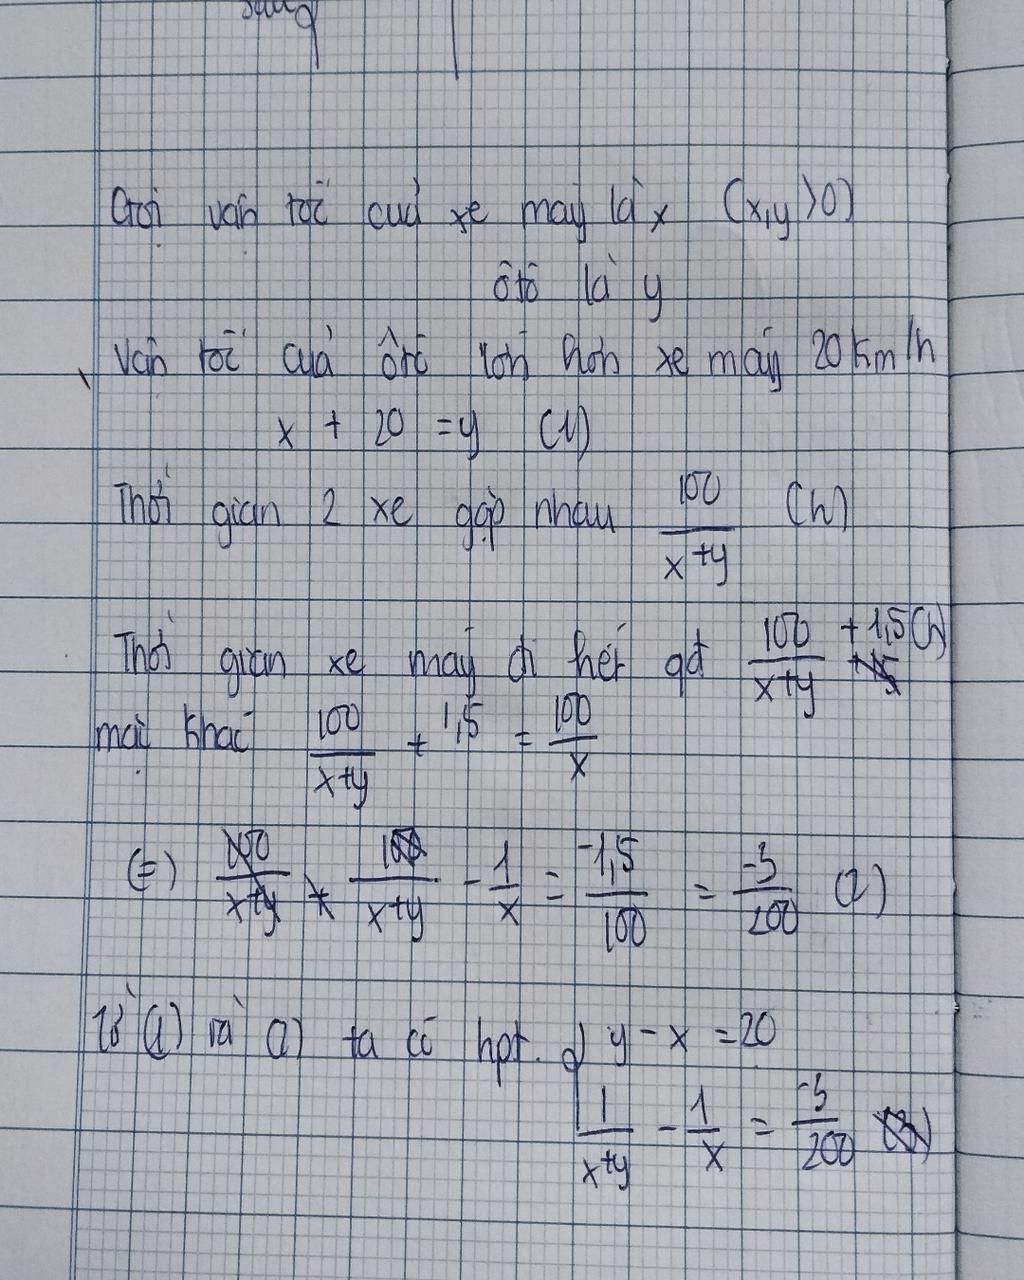 Gọi vận tốc của xe máy là x (x,y>0)
ôtô là y
Vận tốc của ôtô lớn hơn xe máy 20km/h
x + 20 = y (1)
Thời gian 2 xe gặp nhau 100/(x+y) (h)
Thời gian xe máy đi hết qđ 100/(x+y) + 1,5(h)
mặt khác 100/(x+y) + 1,5 = 100/x
(=) 1/(x+y) - 1/x = -1,5/100 = -3/200 (2)
từ (1) và (2) ta có hpt. { y - x = 20
1/(x+y) - 1/x = -3/200